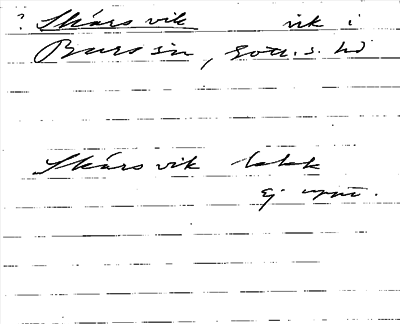 ? Skårsvik vik i
Burs sn, Gotl. s. hd
Skårsvik
ej uppt.